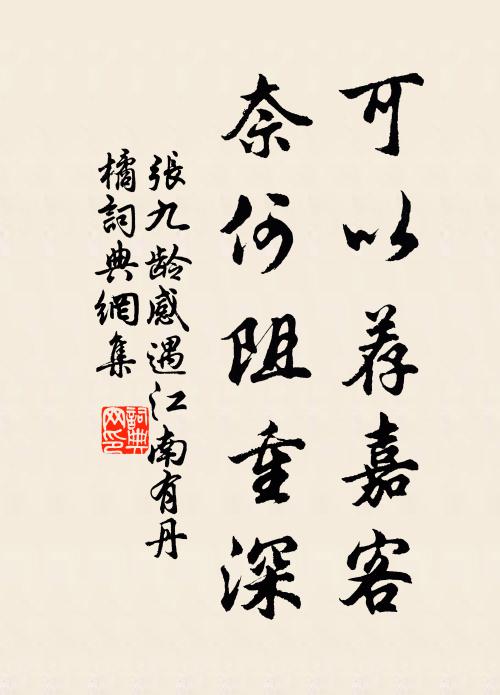 可以荐嘉客
奈何阻重深
張九龄感遇江南有丹
橘詞典網集
詞典
网印